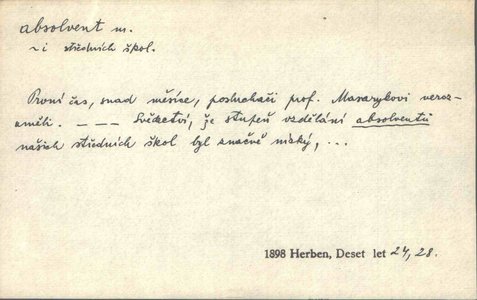 absolvent m.
~i středních škol.
První čas, snad měsíce, posluchači prof. Masarykovi neroz-
uměli. — — — Svědectví, že stupeň vzdělání absolventů
našich středních škol byl značně nízký, ...
1898 Herben, Deset let 24, 28.